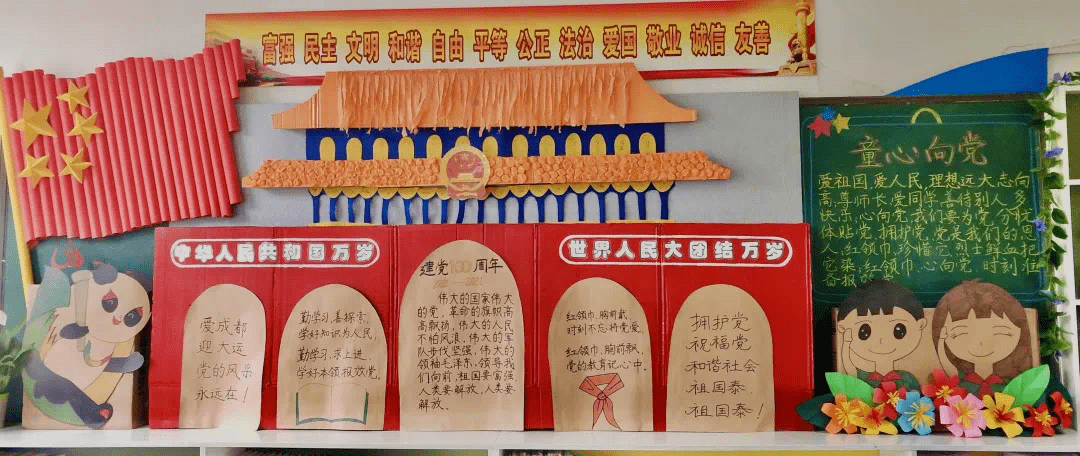 富强 民主 文明 和谐 自由 平等 公正 法治 爱国 敬业 诚信 友善
中华人民共和国万岁
世界人民大团结万岁
爱成都
迎大运
党的风采
永远在！
勤学习，喜探索，
学好知识为人民，
勤学习，求上进，
学好本领报效党。
建党100周年
伟大的国家伟大
的党，革命的旗帜高
高飘扬，伟大的人民
不怕风浪，伟大的军
队步伐坚强，伟大的
领袖毛泽东，领导我
们向前，祖国要富强
人类要解放，人类要
解放。
红领巾，胸前戴，
时刻不忘桥党爱，
红领巾，胸前飘，
党的教育记心中。
拥护党
祝福党
和谐社会
祖国泰
祖国泰！
童心向党
爱祖国，爱人民，理想远大志向
高，尊师长，爱同学，喜待别人多
快乐，心向党，我们要为党分忧
体贴党，拥护党，党是我们的恩
人，红领巾珍惜它，烈士鲜血把
它染，红领巾，心向党，时刻准
备报